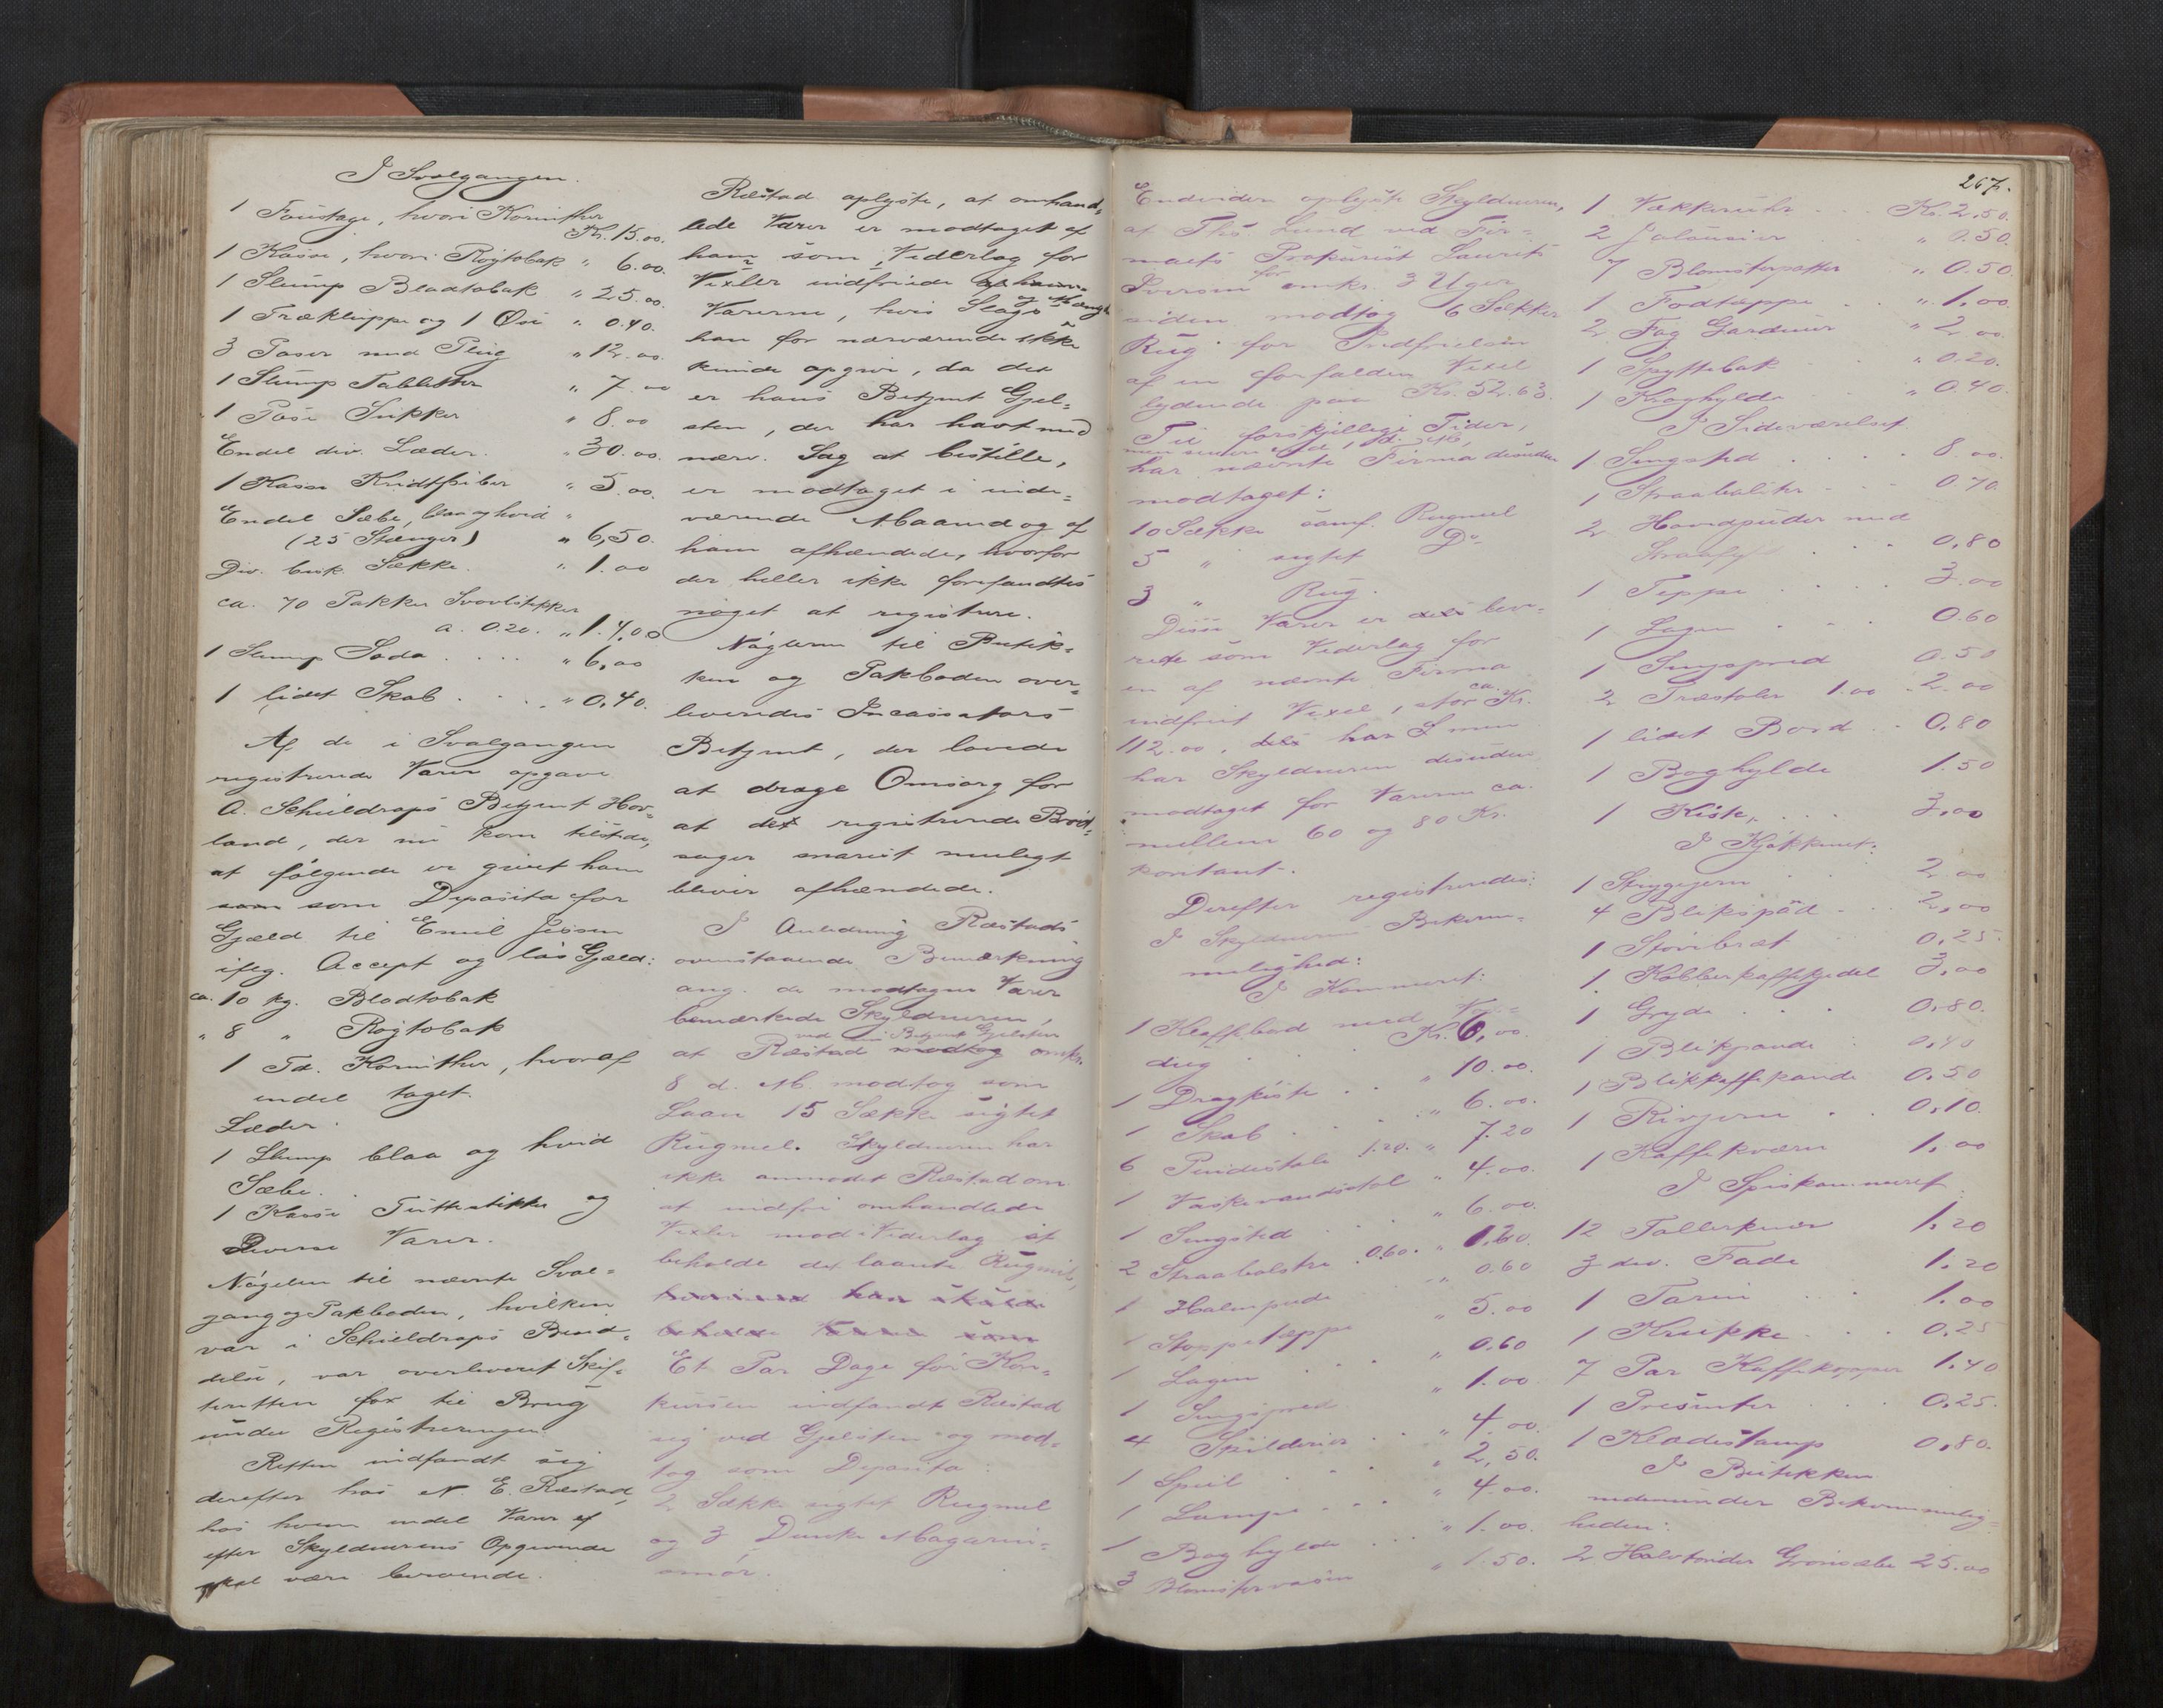 I Svalgangen.
1 Foustage, hvori Korinther
Kr. 15.00.
1 Kasse, hvori Røgtobak " 6.00.
1 Slump Bladtobak " 25.00.
1 Træklippe og 1 Øse " 0.40.
3 Poser med Pling " 12.00.
1 Slump Tabletter " 7.00
1 Pose Sukker " 8.00
Endel div. Læder. " 30.00.
1 Kasse Kridtpiber " 5.00.
Endel Sæbe, blaa og hvid "
(25 Stænger) " 6,50.
Div. bruk. Sække. " 1.00
ca. 70 Pakker Svovlstikker
a. 0.20. " 14,00
1 Slump Soda .... " 6,00
1 lidet Skab .... " 0,40.
Af de i Svalgangen
registrerede Varer opgave
A. Schieldrops Betjent Hov=
land, der nu kom tilstede,
at følgende er givet ham
som Deposita for
Gjæld til Emil Jessen
iflg. Accept og løs Gjæld:
ca. 10 kg. Bladtobak
" 8 " Røgtobak
1 Td. Korinther, hvoraf
endel taget.
Læder.
1 Slump blaa og hvid
Sæbe.
1 Kasse Fyrstikker og
Diverse Varer.
Nøgelen til nævnte Sval=
gang og Pakboden, hvilken
var i Schieldrops Besid=
delse, var overleveret Skif=
teretten før til Brug
under Registreringen.
Retten indfandt sig
derefter hos N. E. Ræstad,
hos hvem endel Varer ef
efter Skyldnerens Opgivende
skal være beroende.
Ræstad oplyste, at omhand=
lede Varer er modtaget af
ham som Vederlag for
Vexler indfriede af ham.
Varerne, hvis Slags og Mængde
han for nærværende ikke
kunde opgive, da det
er hans Betjent Gjel=
sten, der har havt med
nærv. Sag at bestille,
er modtaget i inde=
værende Maaned og af
ham afhændede, hvorfor
der heller ikke forefandtes
noget at registrere.
Nøglerne til Butik=
ken og Pakboden over=
leveredes Incassators
Betjent, der lovede
at drage Omsorg for
at det registrerede Bed=
sager snarest muligt
bliver afhændede.
I Anledning Ræstads
ovenstaaende Bemærkning
ang. de modtagne Varer
bemærkede Skyldneren,
ved sin Betjent Gjelsten
at Ræstad modtog omkr.
8 d. M. modtog som
Laan 15 Sække sigtet
Rugmel. Skyldneren har
ikke anmodet Ræstad om
at indfri omhandlede
Vexler mod i Vederlag at
beholde det laante Rugmel,
Et Par Dage før Kon=
kursen indfandt Ræstad
sig ved Gjelsten og mod=
tog som Deposita:
2 Sække sigtet Rugmel
og 3 Dunke Magarin=
smør.
267.
Endvidere oplyste Skyldneren,
at Ths. Lund ved Fir=
maets Prokurist Laurits
Iversen for omkr. 3 Uger
siden modtog 6 Sækker
Rug for Indfrielsen
af en forfalden Vexel
lydende paa Kr. 52.63.
Til forskjellige Tider,
har nævnte Firma desuden
modtaget:
10 Sække samf. Rugmel
5 " sigtet Do
3 " Rug.
Disse Varer er dels leve=
rede som Vederlag for
en af nævnte Firma
indfriet Vexel, stor ca. Kr.
112.00, dels har
har Skyldneren desuden
modtaget for Varerne ca.
mellem 60 og 80 Kr.
kontant.
Derefter registreredes:
I Skyldnerens Bekvem=
melighed:
I Kammeret:
1 Klaffebord med
dug Kr. 6.00
1 Dragkiste . " 10.00.
1 Skab . . . " 6.00.
6 Pindestole 1.20. " 7.20
1 Vaskevandsstol " 4.00.
1 Sengsted . . " 6.00.
2 Straabolstre 0.60. " 1.20.
1 Halmpude " 0.60
1 Stoppetæppe " 5.00
1 Lagen . . " 0.60
1 Sengspred " 1.00
4 Skilderier . . " 4.00.
1 Speil . . . " 2,50.
1 Lampe . . . " 4.00.
1 Boghylde . . " 1.00.
3 Blomstervaser " 1.50.
1 Vækkeruhr . . Kr. 2,50.
2 Jalousier . . " 0.50.
7 Blomsterpotter " 0.50.
1 Fodtæppe . . " 1.00
2 Fag Gardiner " 2.00.
1 Spyttebak . " 0.20.
1 Kroghylde . " 0.40.
I Sideværelset.
1 Sengsted . . . . 8.00.
1 Straabolster . . . 0.70.
2 Hovedpuder med
Straafyl . . . 0.80
1 Teppe . . . . 3.00
1 Lagen . . . 0.60
1 Sengspred 0.50
2 Træstoler 1.00 . 2.00
1 lidet Bord . . 0,80
1 Boghylde 1.50
1 Kiste, . . . 3,00
I Kjøkkenet:
1 Strygejern . . 2.00
4 Blikspad . . 2,00
1 Støvebræt 0.25.
1 Kobberkaffekjedel 3,00
1 Gryde . . . 0.80.
1 Blikpande . 0,40
1 Blikkaffekande 0.50
1 Rivjern . . 0,10.
1 Kaffekværn 1,00
I Spiskammeret.
12 Tallerkener 1.20
3 div. Fade 1.20
1 Tarin . . . 1.00
1 Krukke . . . 0,25
7 Par Kaffekopper 1.40
1 Presenter . . . 0,25.
1 Klædestamp 0,80.
I Butikken
nedenunder Bekvemmelig=
heden:
2 Halvtønder Grønsæbe 25.00